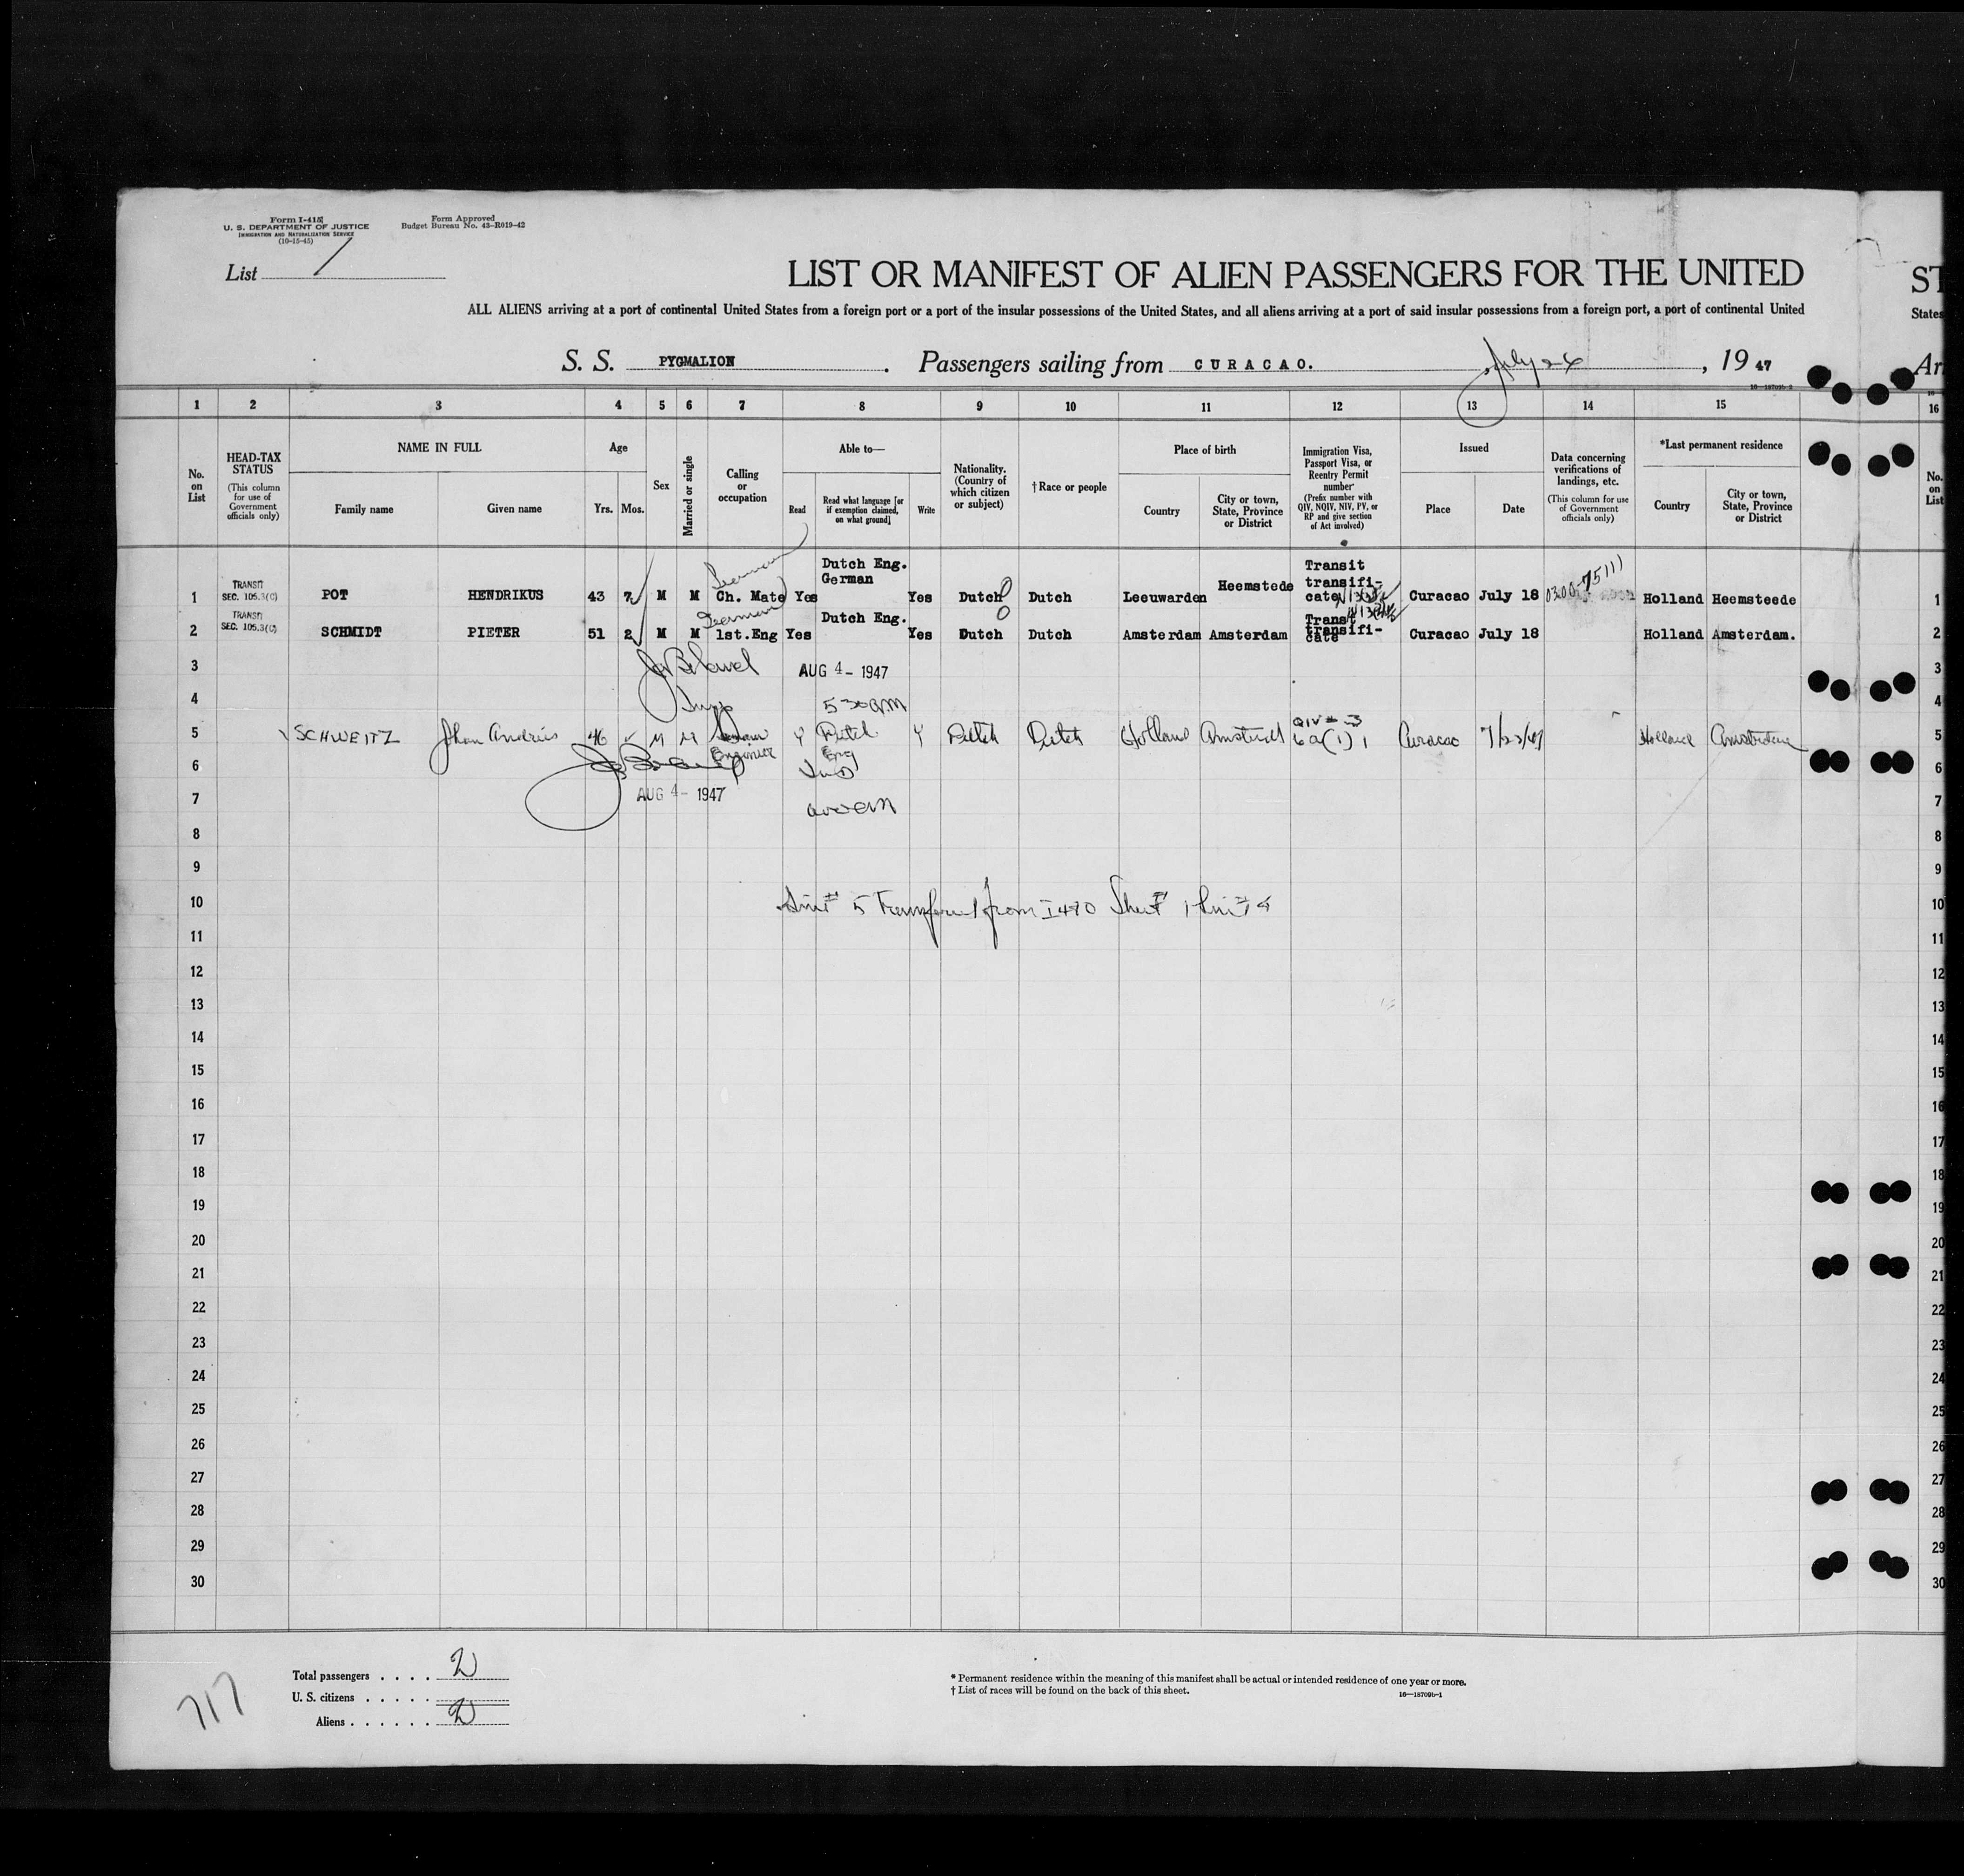 Form I-415
U. S. DEPARTMENT OF JUSTICE
IMMIGRATION AND NATURALIZATION SERVICE
(10-15-45)
Form Approved
Budget Bureau No. 43-R019-42
List 1
LIST OR MANIFEST OF ALIEN PASSENGERS FOR THE UNITED
ST
ALL ALIENS arriving at a port of continental United States from a foreign port or a port of the insular possessions of the United States, and all aliens arriving at a port of said insular possessions from a foreign port, a port of continental United
States
S. S. PYGMALION . Passengers sailing from CURACAO. , July 26 , 19 47
Ar
1 2 3 4 5 6 7 8 9 10 11 12 13 14 15 16
No. on List
HEAD-TAX STATUS (This column for use of Government officials only)
NAME IN FULL
Family name Given name
Age
Yrs. Mos.
Sex
Married or single
Calling or occupation
Able to—
Read
Read what language [or if exemption claimed, on what ground]
Write
Nationality. (Country of which citizen or subject)
† Race or people
Place of birth
Country
City or town, State, Province or District
Immigration Visa, Passport Visa, or Reentry Permit number (Prefix number with QIV, NQIV, NIV, PV, or RP and give section of Act involved)
Issued
Place Date
Data concerning verifications of landings, etc. (This column for use of Government officials only)
*Last permanent residence
Country
City or town, State, Province or District
No. on List
1 TRANSIT SEC. 105.3(C) POT HENDRIKUS 43 7 M M Ch. Mate Yes Dutch Eng. German Yes Dutch Dutch Leeuwarden Heemstede Transit transifi-cate Curacao July 18 0300-75111 Holland Heemsteede 1
2 TRANSIT SEC. 105.3(C) SCHMIDT PIETER 51 2 M M German 1st.Eng Yes Dutch Eng. Yes Dutch Dutch Amsterdam Amsterdam Transt transifi-cate Curacao July 18 Holland Amsterdam. 2
3 AUG 4 - 1947 3
4 Insp 5 30 am 4
5 SCHWEITZ Johan Andries 46 M M Engineer Y Dutch Eng Y Dutch Dutch Holland Amsterdam QIV # 3 6a(1)1 Curacao 7/23/47 Holland Amsterdam 5
6 6
7 AUG 4 - 1947 7
8 8
9 9
10 Line # 5 Transferred from I 490 Sheet # 1 Line 4 10
11 11
12 12
13 13
14 14
15 15
16 16
17 17
18 18
19 19
20 20
21 21
22 22
23 23
24 24
25 25
26 26
27 27
28 28
29 29
30 30
717
Total passengers . . . . 2
U. S. citizens . . . . .
Aliens . . . . . . 2
* Permanent residence within the meaning of this manifest shall be actual or intended residence of one year or more.
† List of races will be found on the back of this sheet.
16—18709b-1